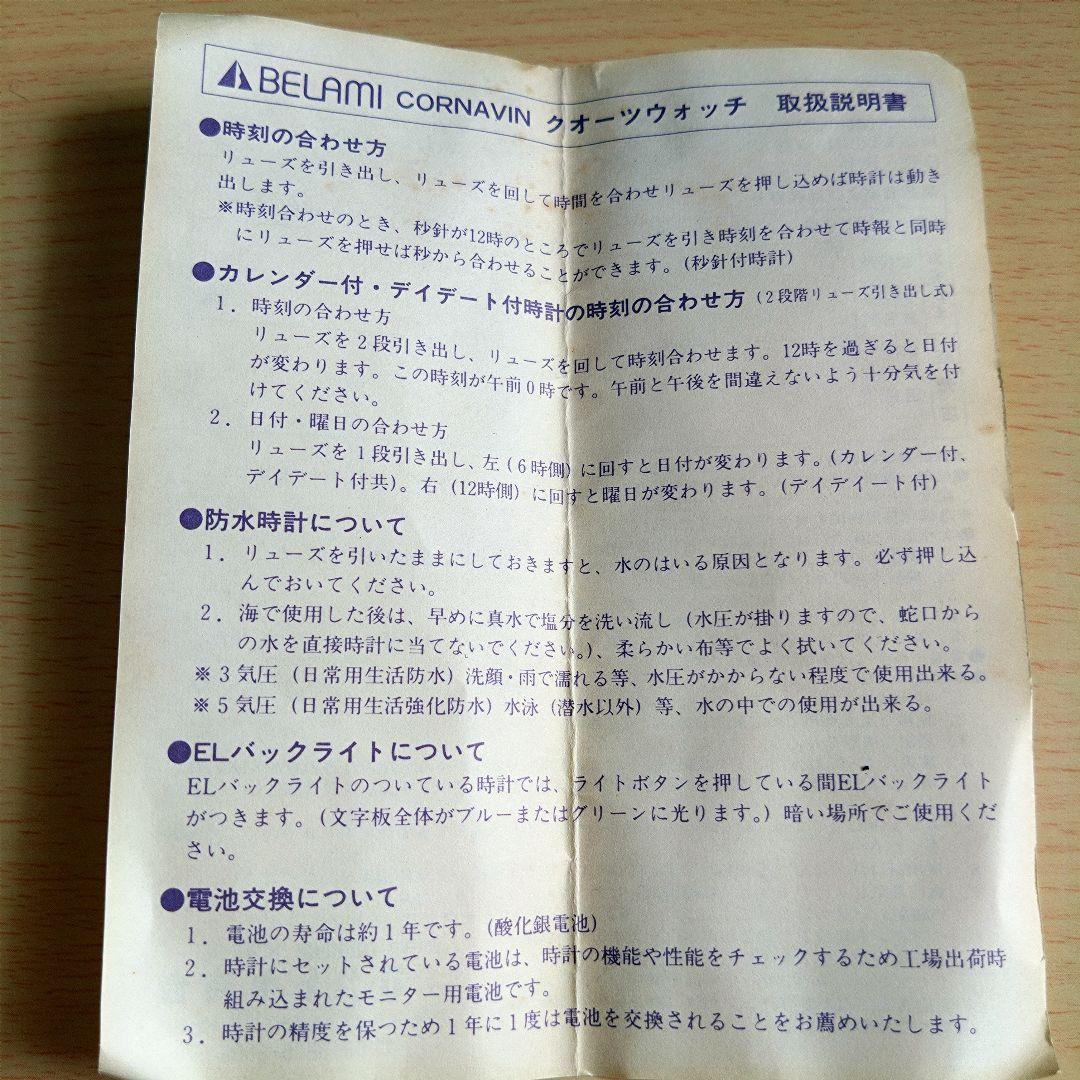 BELAMI CORNAVIN クオーツウォッチ 取扱説明書
●時刻の合わせ方
リューズを引き出し、リューズを回して時間を合わせリューズを押し込めば時計は動き
出します。
※時刻合わせのとき、秒針が12時のところでリューズを引き時刻を合わせて時報と同時
にリューズを押せば秒から合わせることができます。(秒針付時計)
●カレンダー付・デイデート付時計の時刻の合わせ方(2段階リューズ引き出し式)
1. 時刻の合わせ方
リューズを2段引き出し、リューズを回して時刻合わせます。12時を過ぎると日付
が変わります。この時刻が午前0時です。午前と午後を間違えないよう十分気を付
けてください。
2. 日付・曜日の合わせ方
リューズを1段引き出し、左(6時側)に回すと日付が変わります。(カレンダー付、
デイデート付共)。右(12時側)に回すと曜日が変わります。(デイデイート付)
●防水時計について
1. リューズを引いたままにしておきますと、水のはいる原因となります。必ず押し込
んでおいてください。
2. 海で使用した後は、早めに真水で塩分を洗い流し(水圧が掛りますので、蛇口から
の水を直接時計に当てないでください。)、柔らかい布等でよく拭いてください。
※3気圧(日常用生活防水)洗顔・雨で濡れる等、水圧がかからない程度で使用出来る。
※5気圧(日常用生活強化防水)水泳(潜水以外)等、水の中での使用が出来る。
●ELバックライトについて
ELバックライトのついている時計では、ライトボタンを押している間ELバックライト
がつきます。(文字板全体がブルーまたはグリーンに光ります。)暗い場所でご使用くだ
さい。
●電池交換について
1. 電池の寿命は約1年です。(酸化銀電池)
2. 時計にセットされている電池は、時計の機能や性能をチェックするため工場出荷時
組み込まれたモニター用電池です。
3. 時計の精度を保つため1年に1度は電池を交換されることをお薦めいたします。